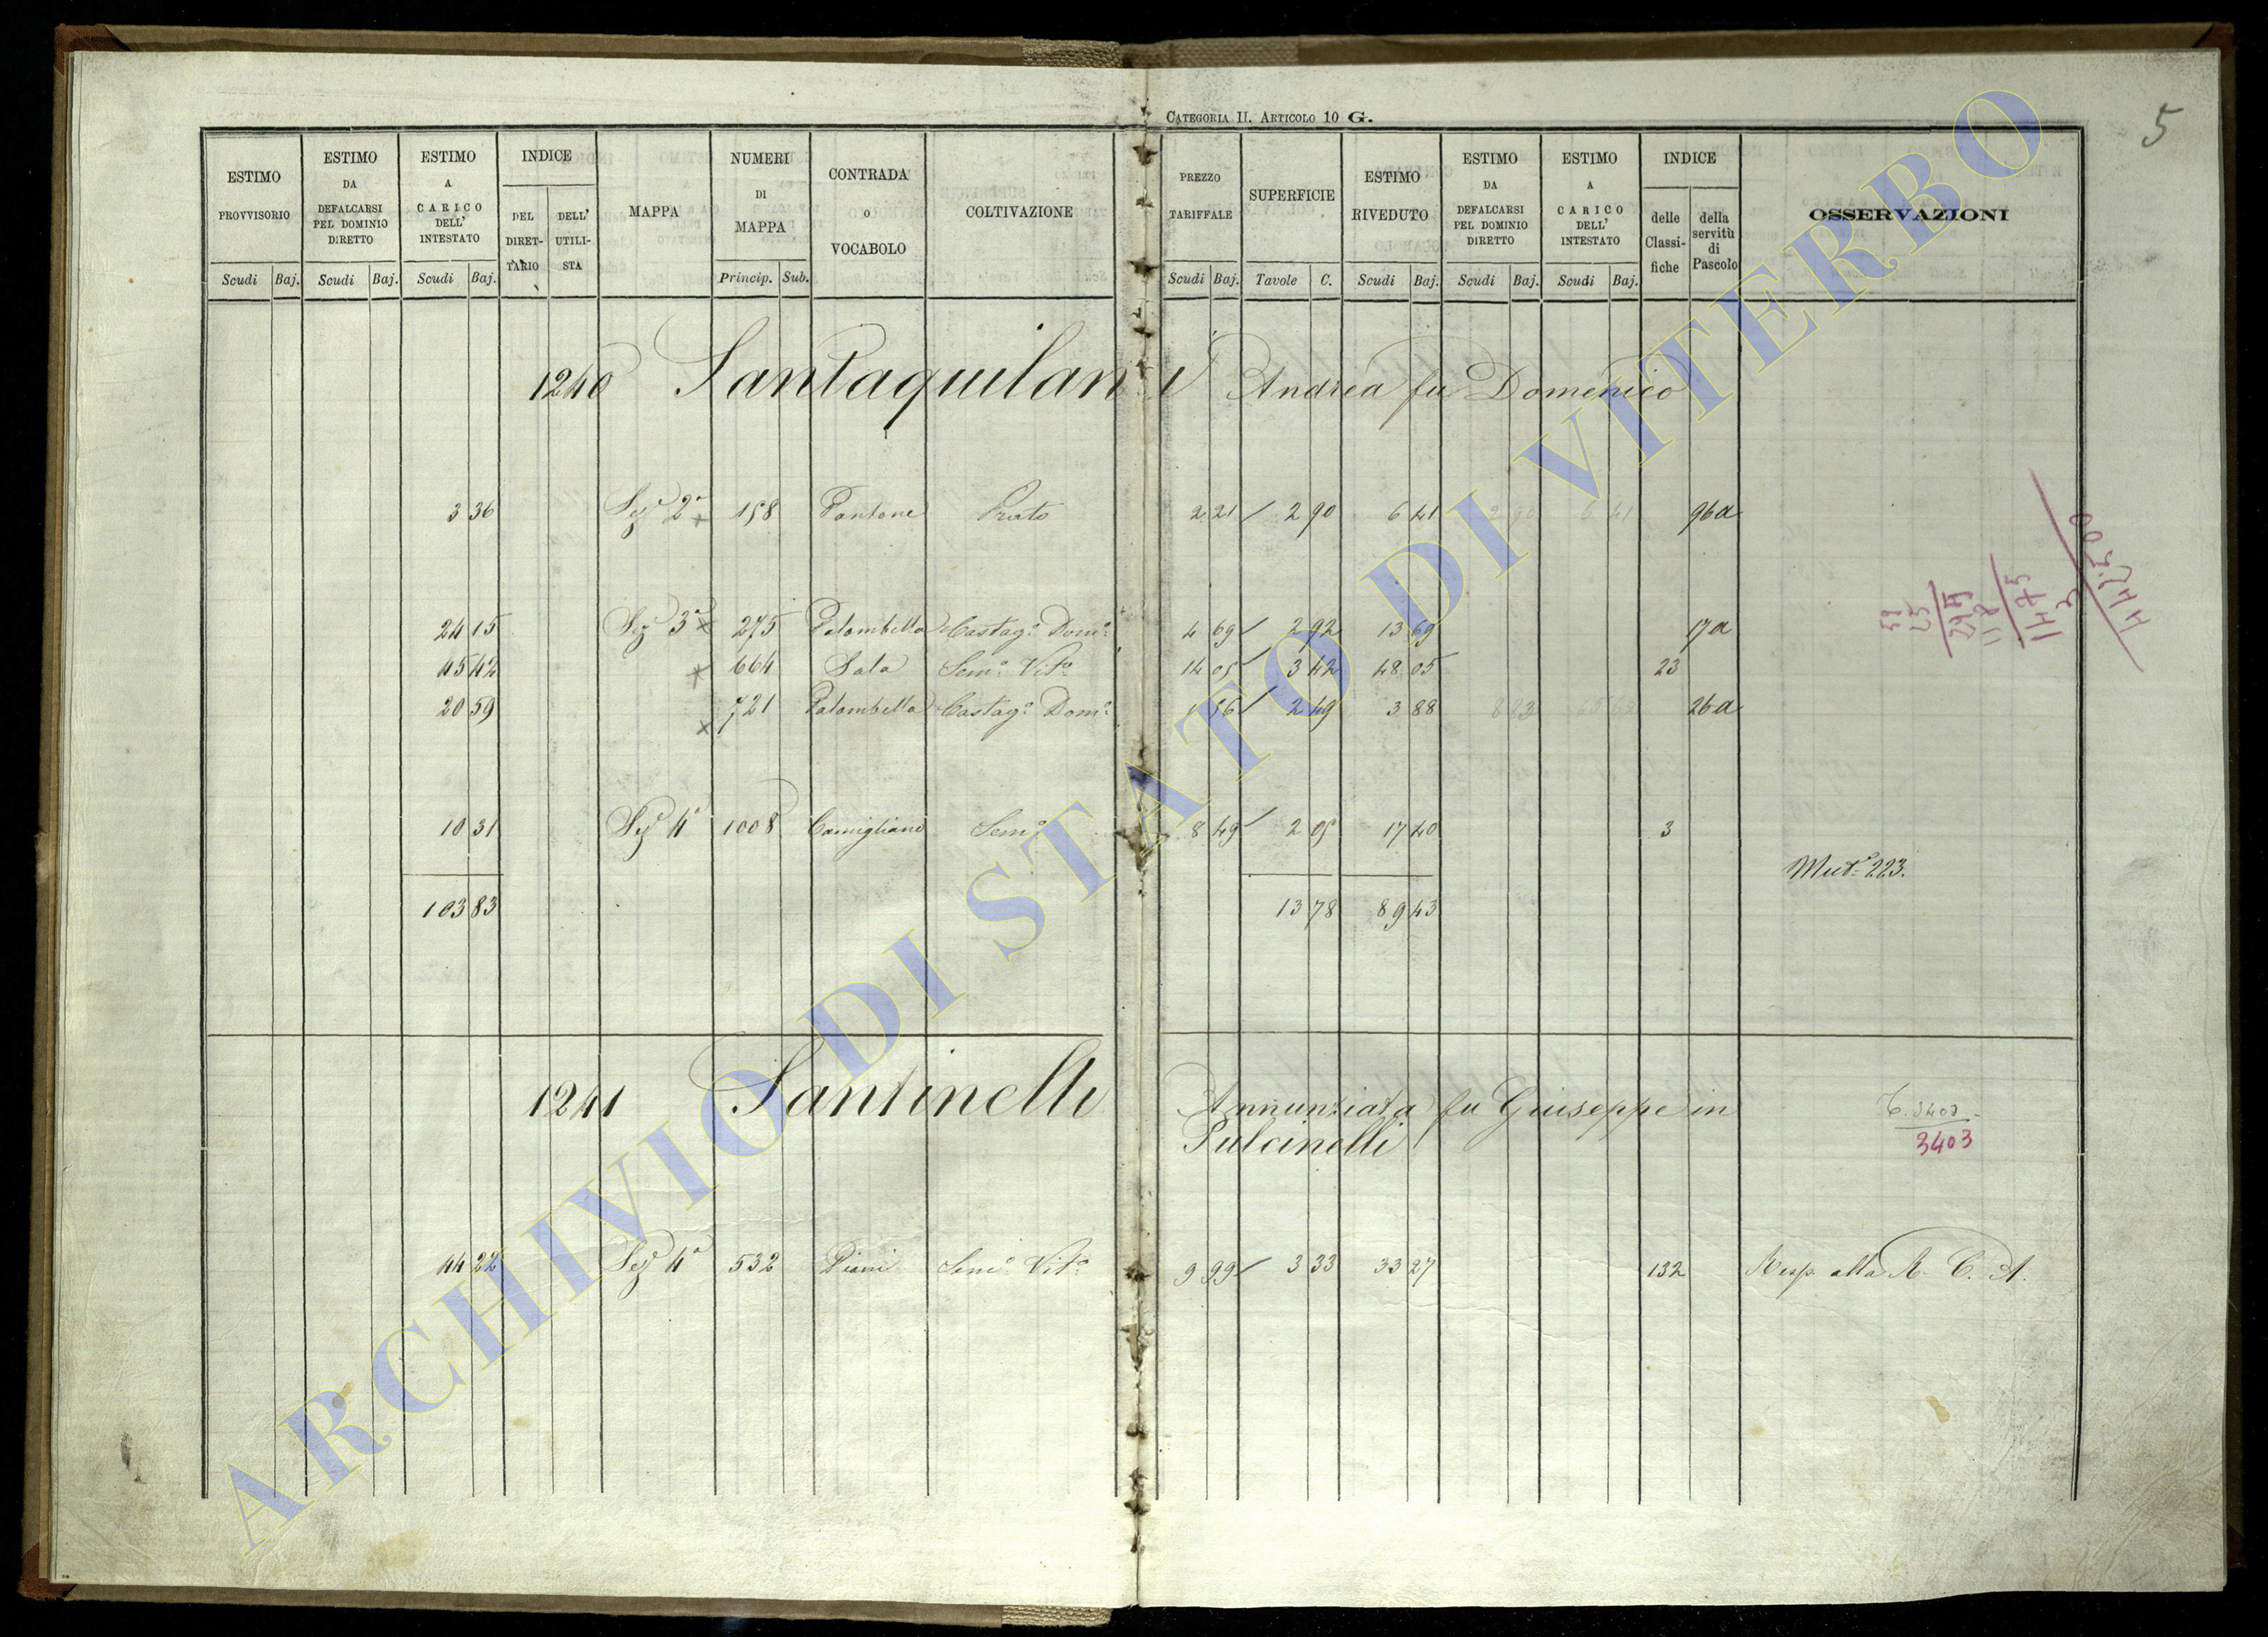 CATEGORIA II. ARTICOLO 10 G.
5
ESTIMO PROVVISORIO Scudi Baj.
ESTIMO DA DEFALCARSI PEL DOMINIO DIRETTO Scudi Baj.
ESTIMO A CARICO DELL' INTESTATO Scudi Baj.
INDICE DEL DIRETTARIO DELL' UTILISTA
MAPPA
NUMERI DI MAPPA Princip. Sub.
CONTRADA o VOCABOLO
COLTIVAZIONE
PREZZO TARIFFALE Scudi Baj.
SUPERFICIE Tavole C.
ESTIMO RIVEDUTO Scudi Baj.
ESTIMO DA DEFALCARSI PEL DOMINIO DIRETTO Scudi Baj.
ESTIMO A CARICO DELL' INTESTATO Scudi Baj.
INDICE delle Classifiche della servitù di Pascolo
OSSERVAZIONI
1240 Santaquilani Andrea fu Domenico
3 36 Sez.e 2a 158 Pantane Prato 2 21 2 90 6 41 96a
24 15 Sez.e 3a 275 Palombella Castag.o Dom.o 4 69 2 92 13 69 17a
45 42 664 Sala Sem.o Vit.o 14 05 3 42 48 05 23
20 59 721 Palombella Castag.o Dom.o 1 56 2 49 3 88 26a
10 31 Sez.e 4a 1008 Camigliano Sem.o 8 49 2 05 17 40 3
Mut.e 223.
103 83 13 78 89 43
1241 Santinelli Annunziata fu Giuseppe in
Pulcinelli
3403
44 22 Sez.e 4a 532 Piani Sem.o Vit.o 9 99 3 33 33 27 132 Resp. alla R. C. A.
ARCHIVIO DI STATO DI VITERBO